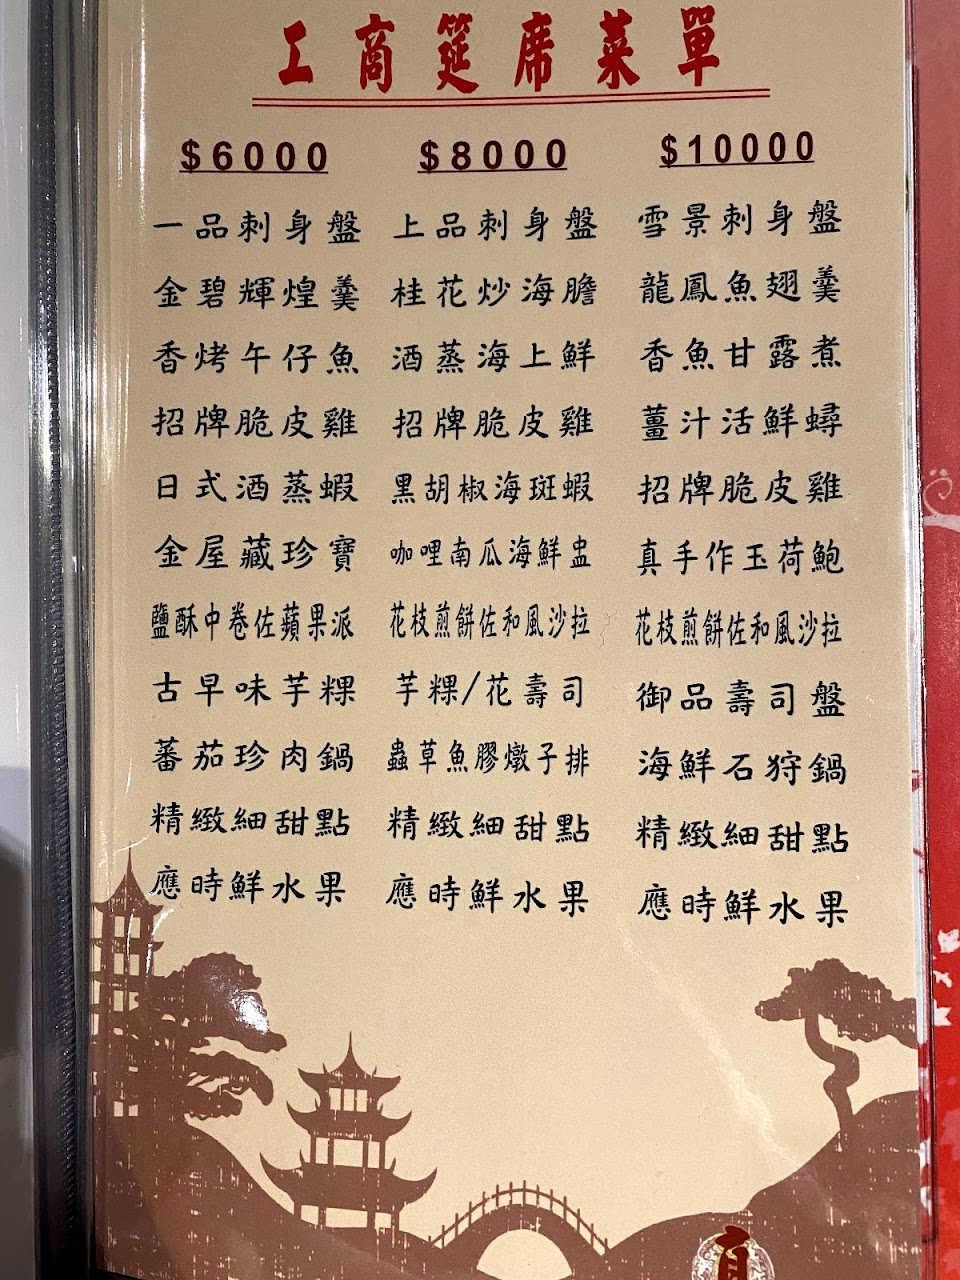 工商筵席菜單
$6000
一品刺身盤
金碧輝煌羹
香烤午仔魚
招牌脆皮雞
日式酒蒸蝦
金屋藏珍寶
鹽酥中卷佐蘋果派
古早味芋粿
蕃茄珍肉鍋
精緻細甜點
應時鮮水果
$8000
上品刺身盤
桂花炒海膽
酒蒸海上鮮
招牌脆皮雞
黑胡椒海斑蝦
咖哩南瓜海鮮盅
花枝煎餅佐和風沙拉
芋粿/花壽司
蟲草魚膠燉子排
精緻細甜點
應時鮮水果
$10000
雪景刺身盤
龍鳳魚翅羹
香魚甘露煮
薑汁活鮮蟳
招牌脆皮雞
真手作玉荷鮑
花枝煎餅佐和風沙拉
御品壽司盤
海鮮石狩鍋
精緻細甜點
應時鮮水果